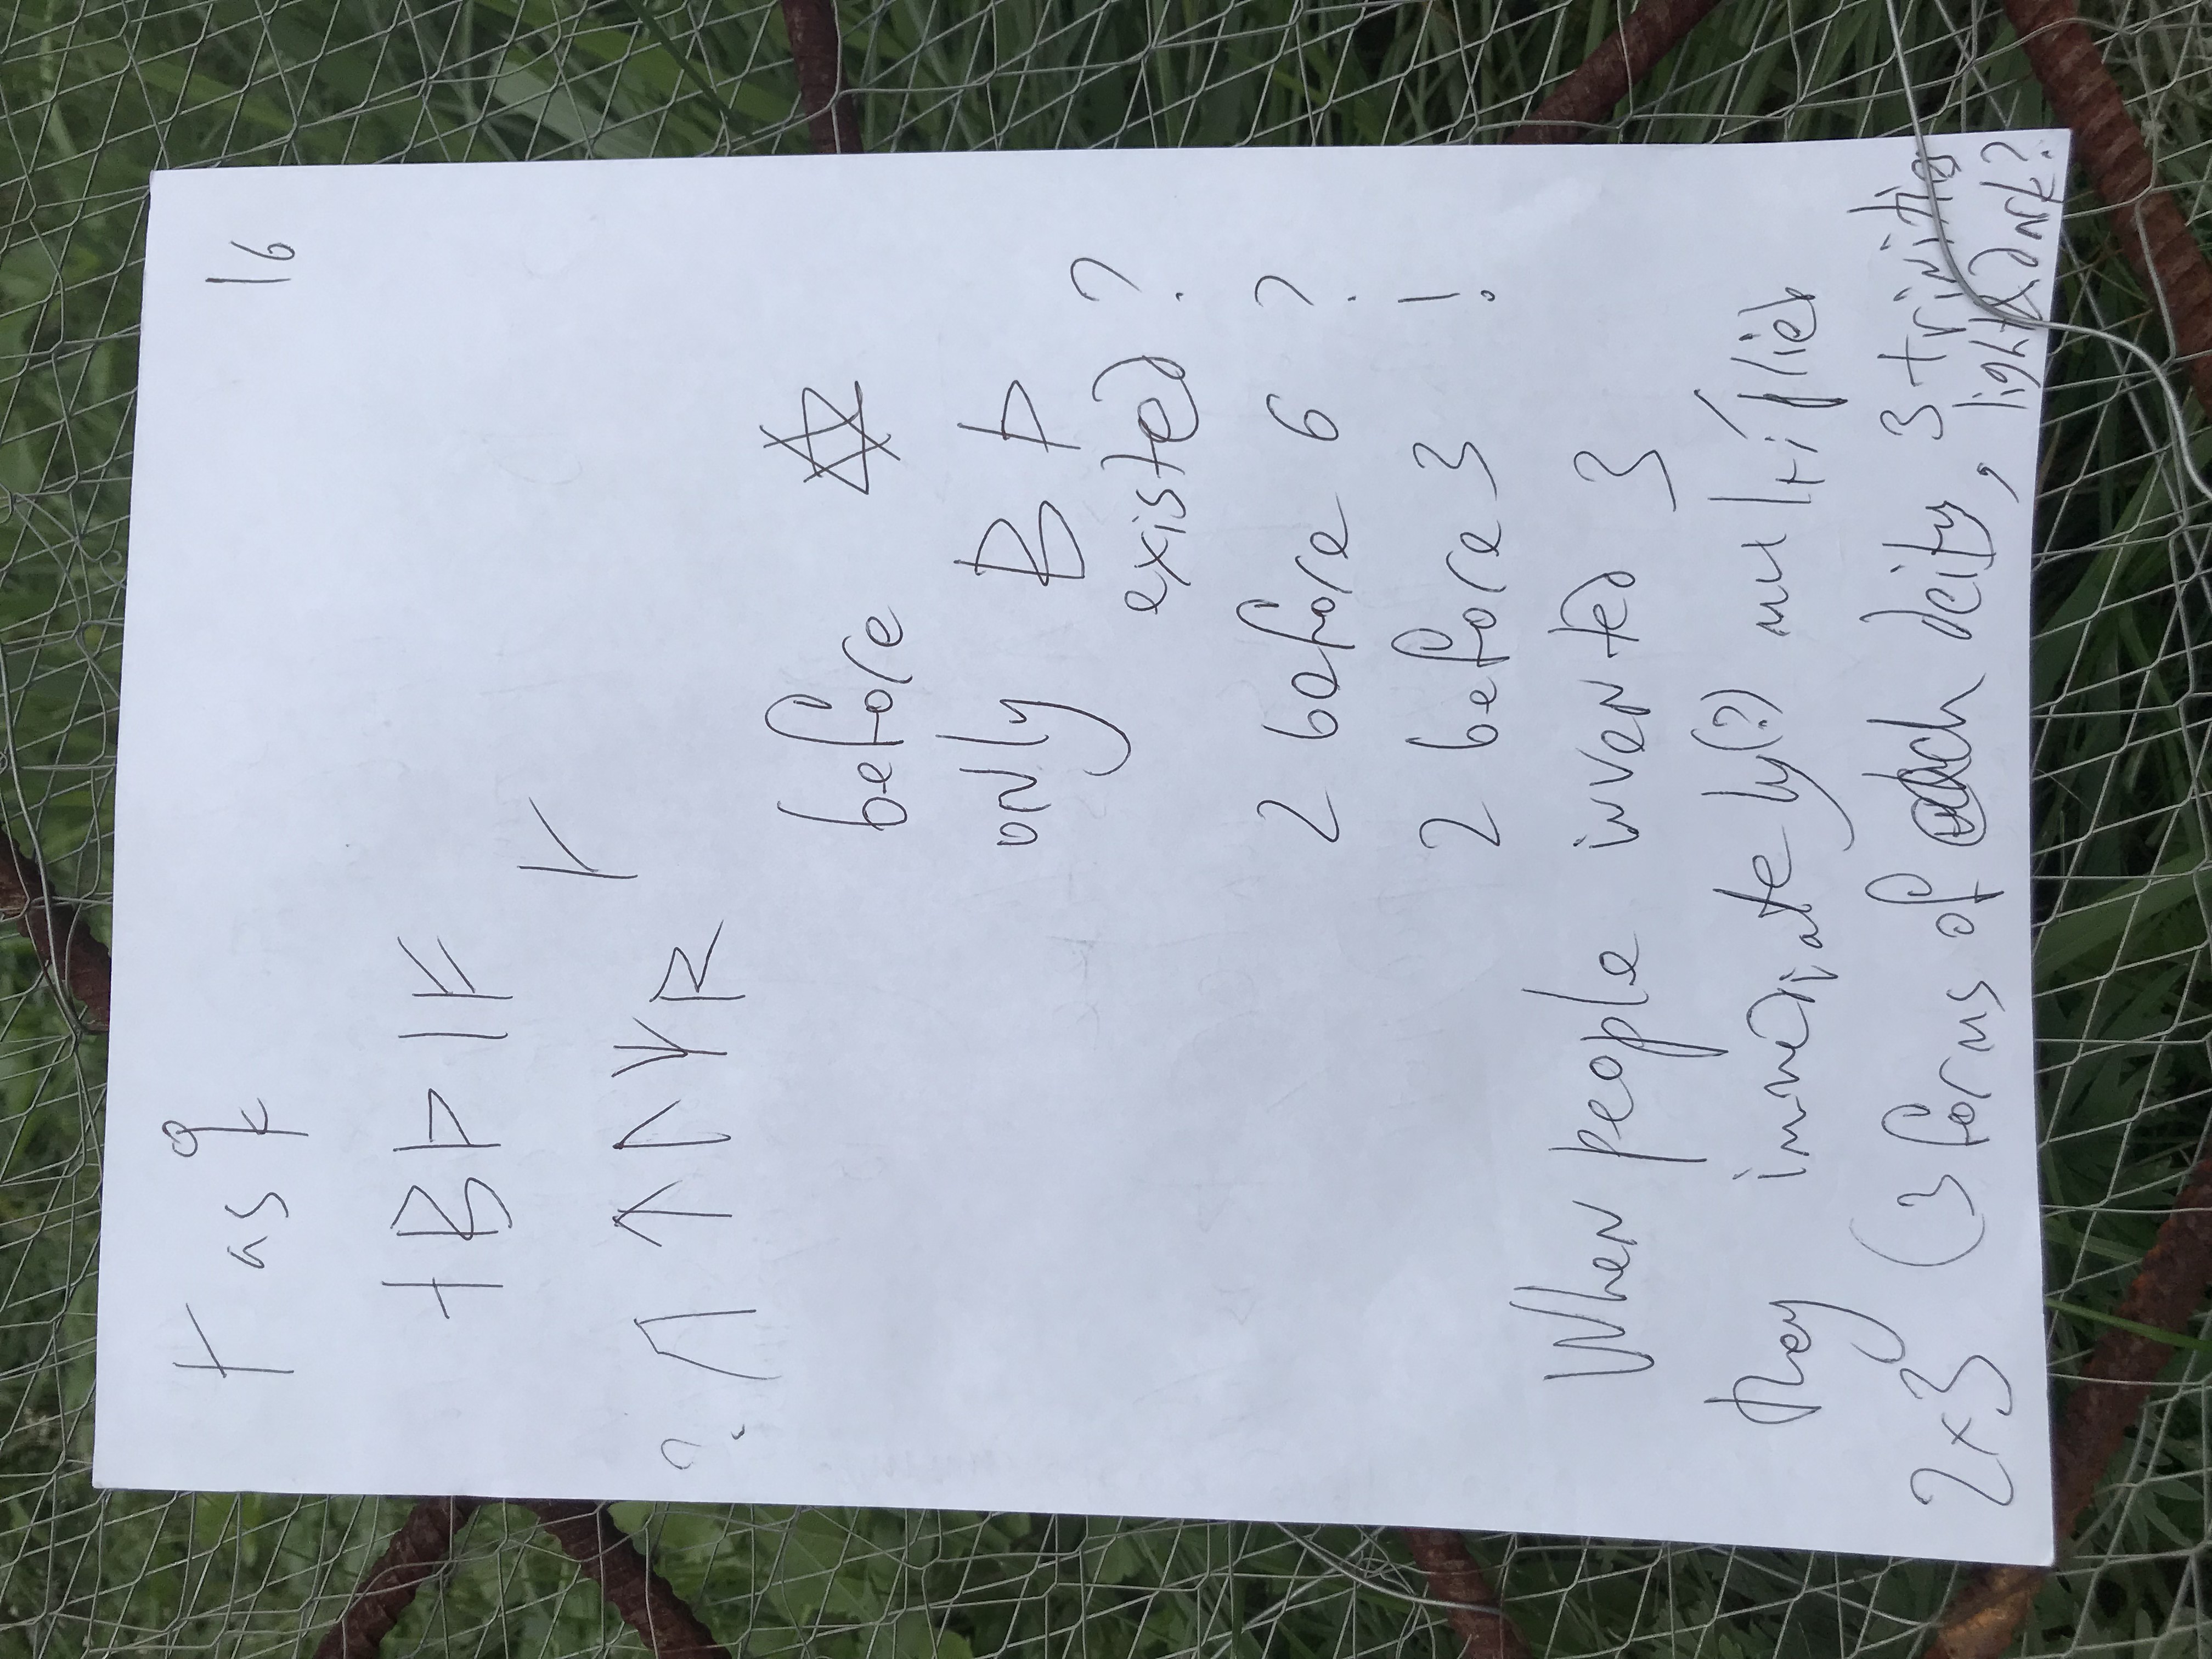 ᚴ as ߉ 16
ᛆ ᛒ ᚦ ᛁ ᚠ
ᚴ
? ᚢ ᛏ ᛚ ᛘ ᚱ
before ✡
only ᛒ ᚦ
existed ?
2 before 6 ?
2 before 3 !
When people invented 3
they immediately(?) multiplied
2×3 (3 forms of each deity, 3 trinities
light & dark?